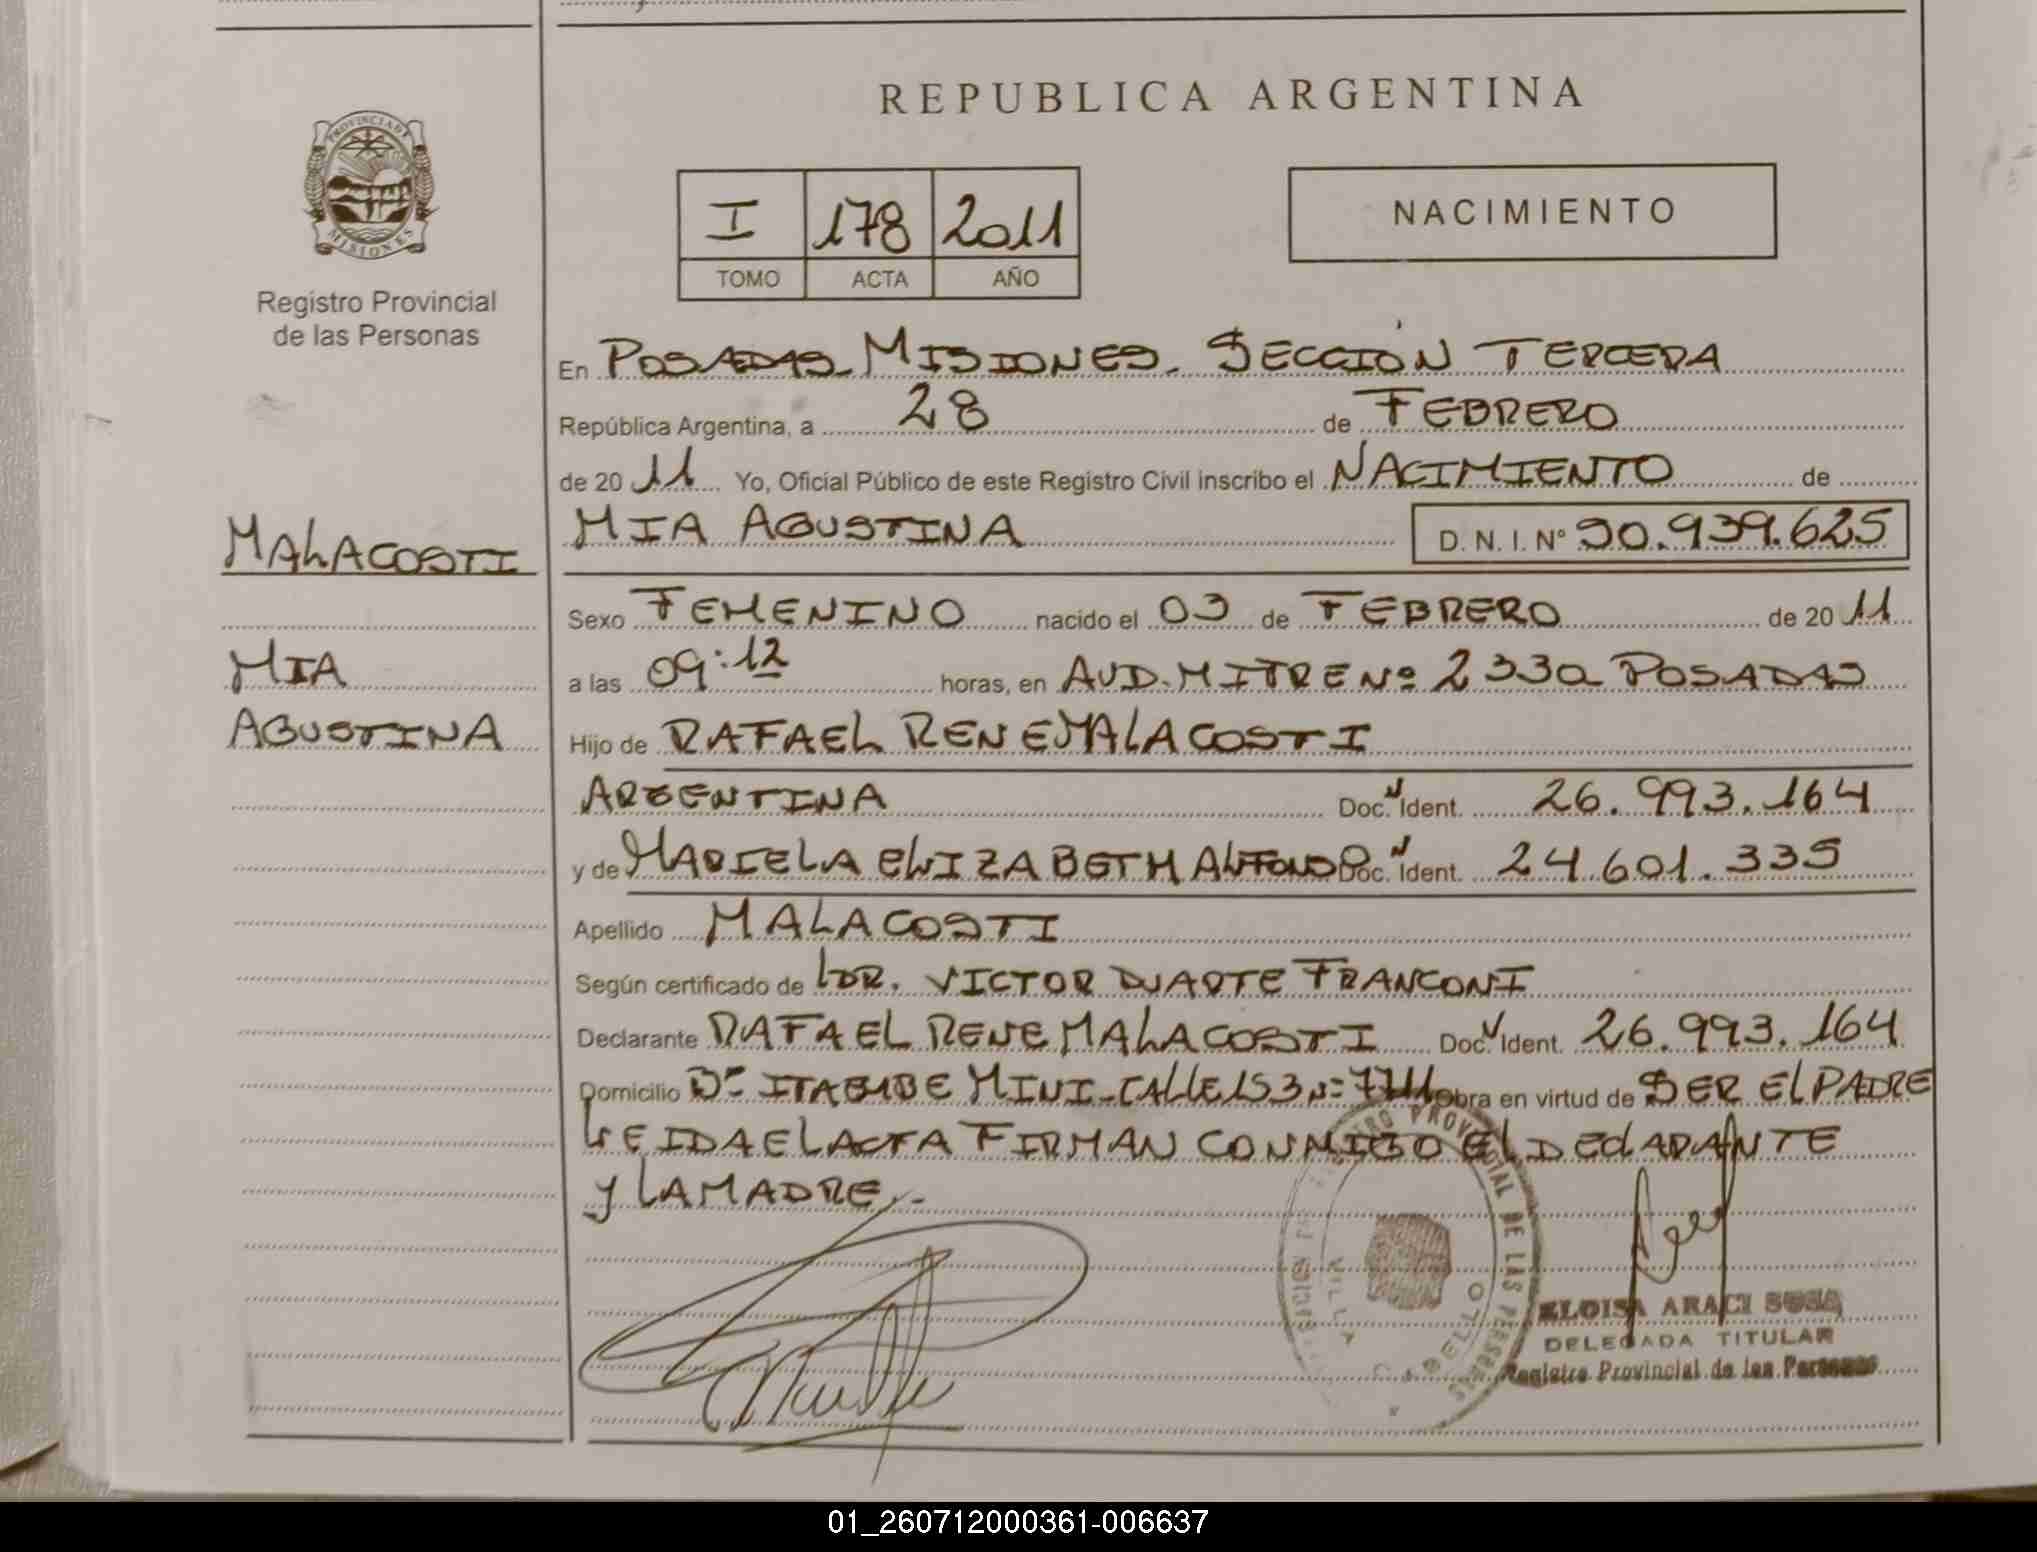 REPUBLICA ARGENTINA
PROVINCIA D
MISIONES
Registro Provincial
de las Personas
I 178 2011
TOMO ACTA AÑO
NACIMIENTO
En POSADAS-MISIONES. SECCIÓN TERCERA
República Argentina, a 28 de FEBRERO
de 20 11 Yo, Oficial Público de este Registro Civil inscribo el NACIMIENTO de
MALACOSTI
MIA AGUSTINA D. N. I. N° 50.939.625
Sexo FEMENINO nacido el 03 de FEBRERO de 20 11
MIA
a las 09:12 horas, en AVD. MITRE Nº 2330 POSADAS
AGUSTINA
Hijo de RAFAEL RENE MALACOSTI
ARGENTINA Doc. Ident. 26.993.164
y de MARIELA ELIZABETH ALFONSO Doc. Ident. 24.601.335
Apellido MALACOSTI
Según certificado de DR. VICTOR DUARTE FRANCONI
Declarante RAFAEL RENE MALACOSTI Doc. Ident. 26.993.164
Domicilio Bº ITAEMBE MINI-CALLE 153 Nº 7711 Obra en virtud de SER EL PADRE
LEIDA EL ACTA FIRMAN CONMIGO EL DECLARANTE
Y LA MADRE.-
REGISTRO PROVINCIAL DE LAS PERSONAS
VILLA CABELLO
ELOISA ARACI SOSA
DELEGADA TITULAR
Registro Provincial de las Personas
01_260712000361-006637